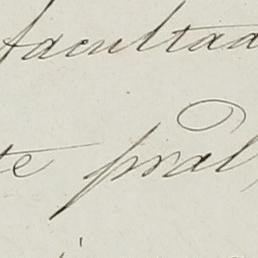 facultad
te pral,